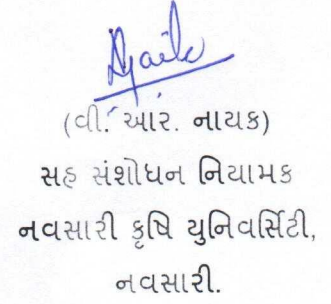 (વી. આર. નાયક)
સહ સંશોધન નિયામક
નવસારી કૃષિ યુનિવર્સિટી,
નવસારી.